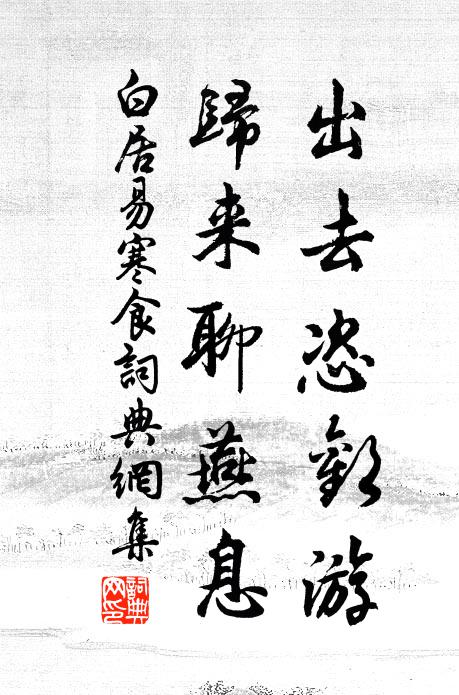 出去恣歡游
歸来聊燕息
白居易寒食詞典網集
詞典网印